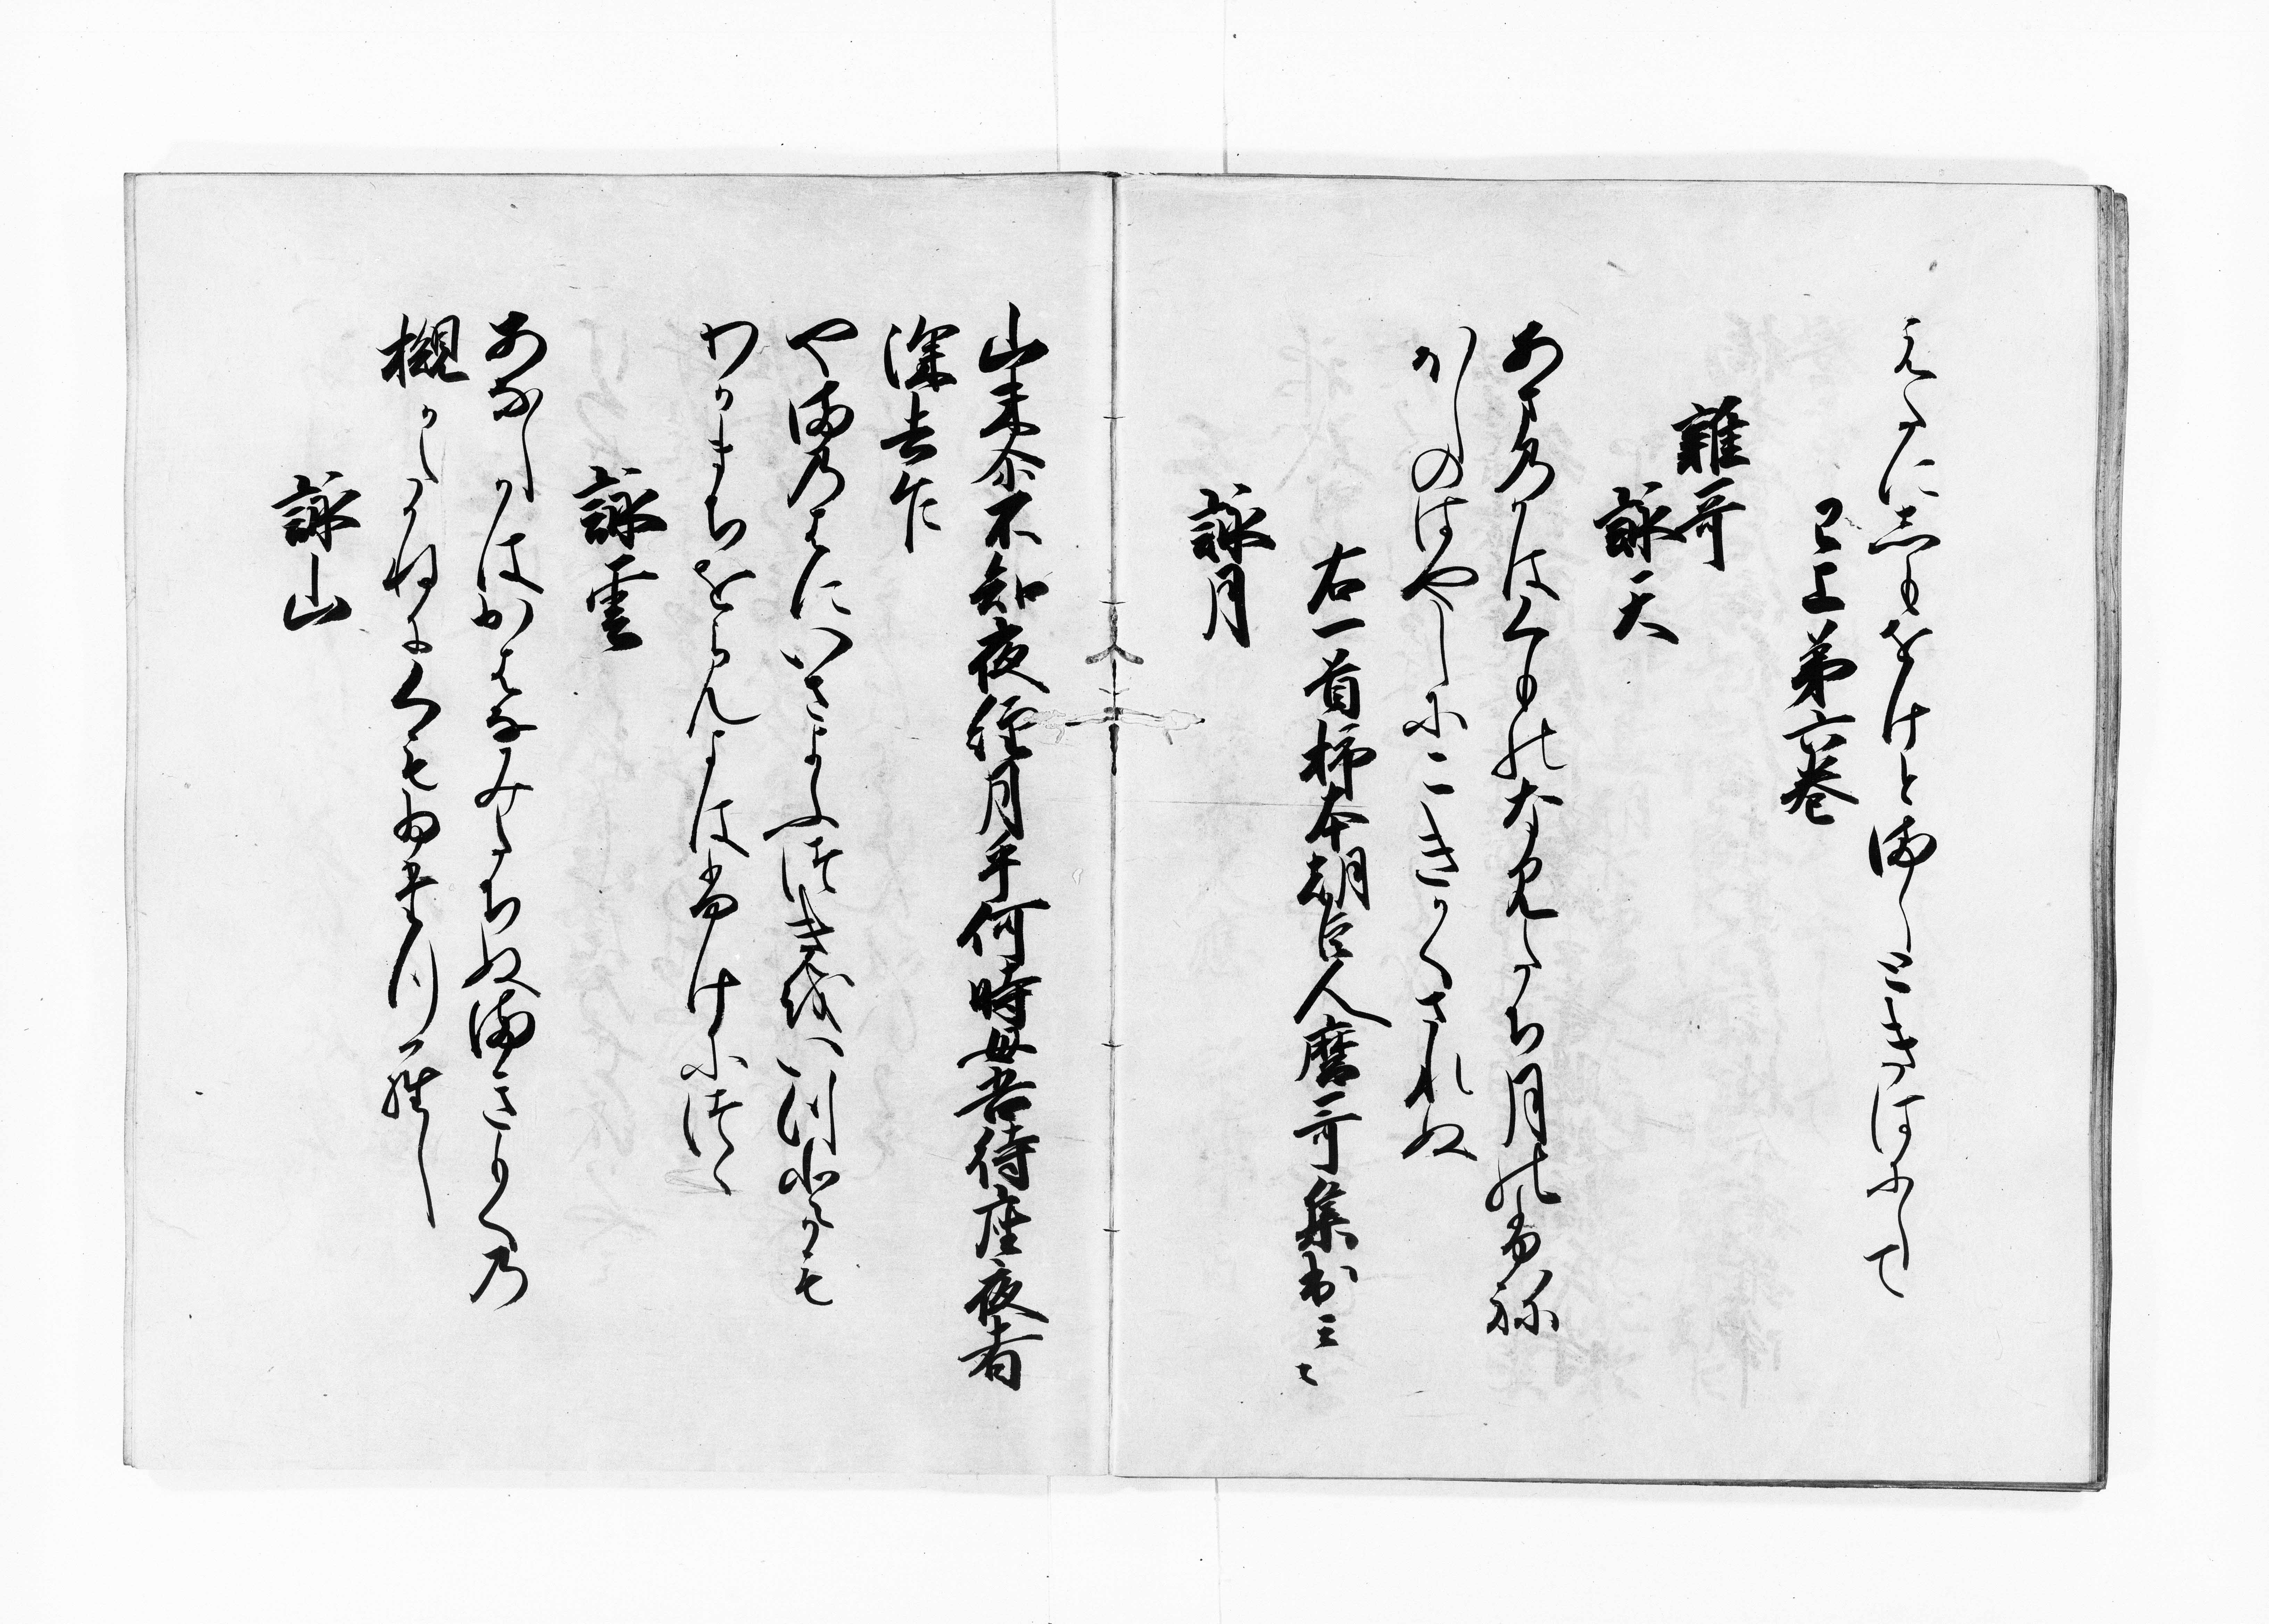 えたに志もをけとましときはにして
已上第六巻
雜哥
詠天
あまのかはくものなみたち月のふね
ほしのはやしにこきかくされぬ
右一首柿本朝臣人麿哥集出云々
詠月
山末尓不知夜經月乎何時母吾待座夜者
深去乍
やまのはにいさよふつきをいつしかも
わかまちをらんよはふけにつゝ
詠雲
あなしかはかはなみたちぬまきもくの
槻かたかねにくもゐたつらし
詠山